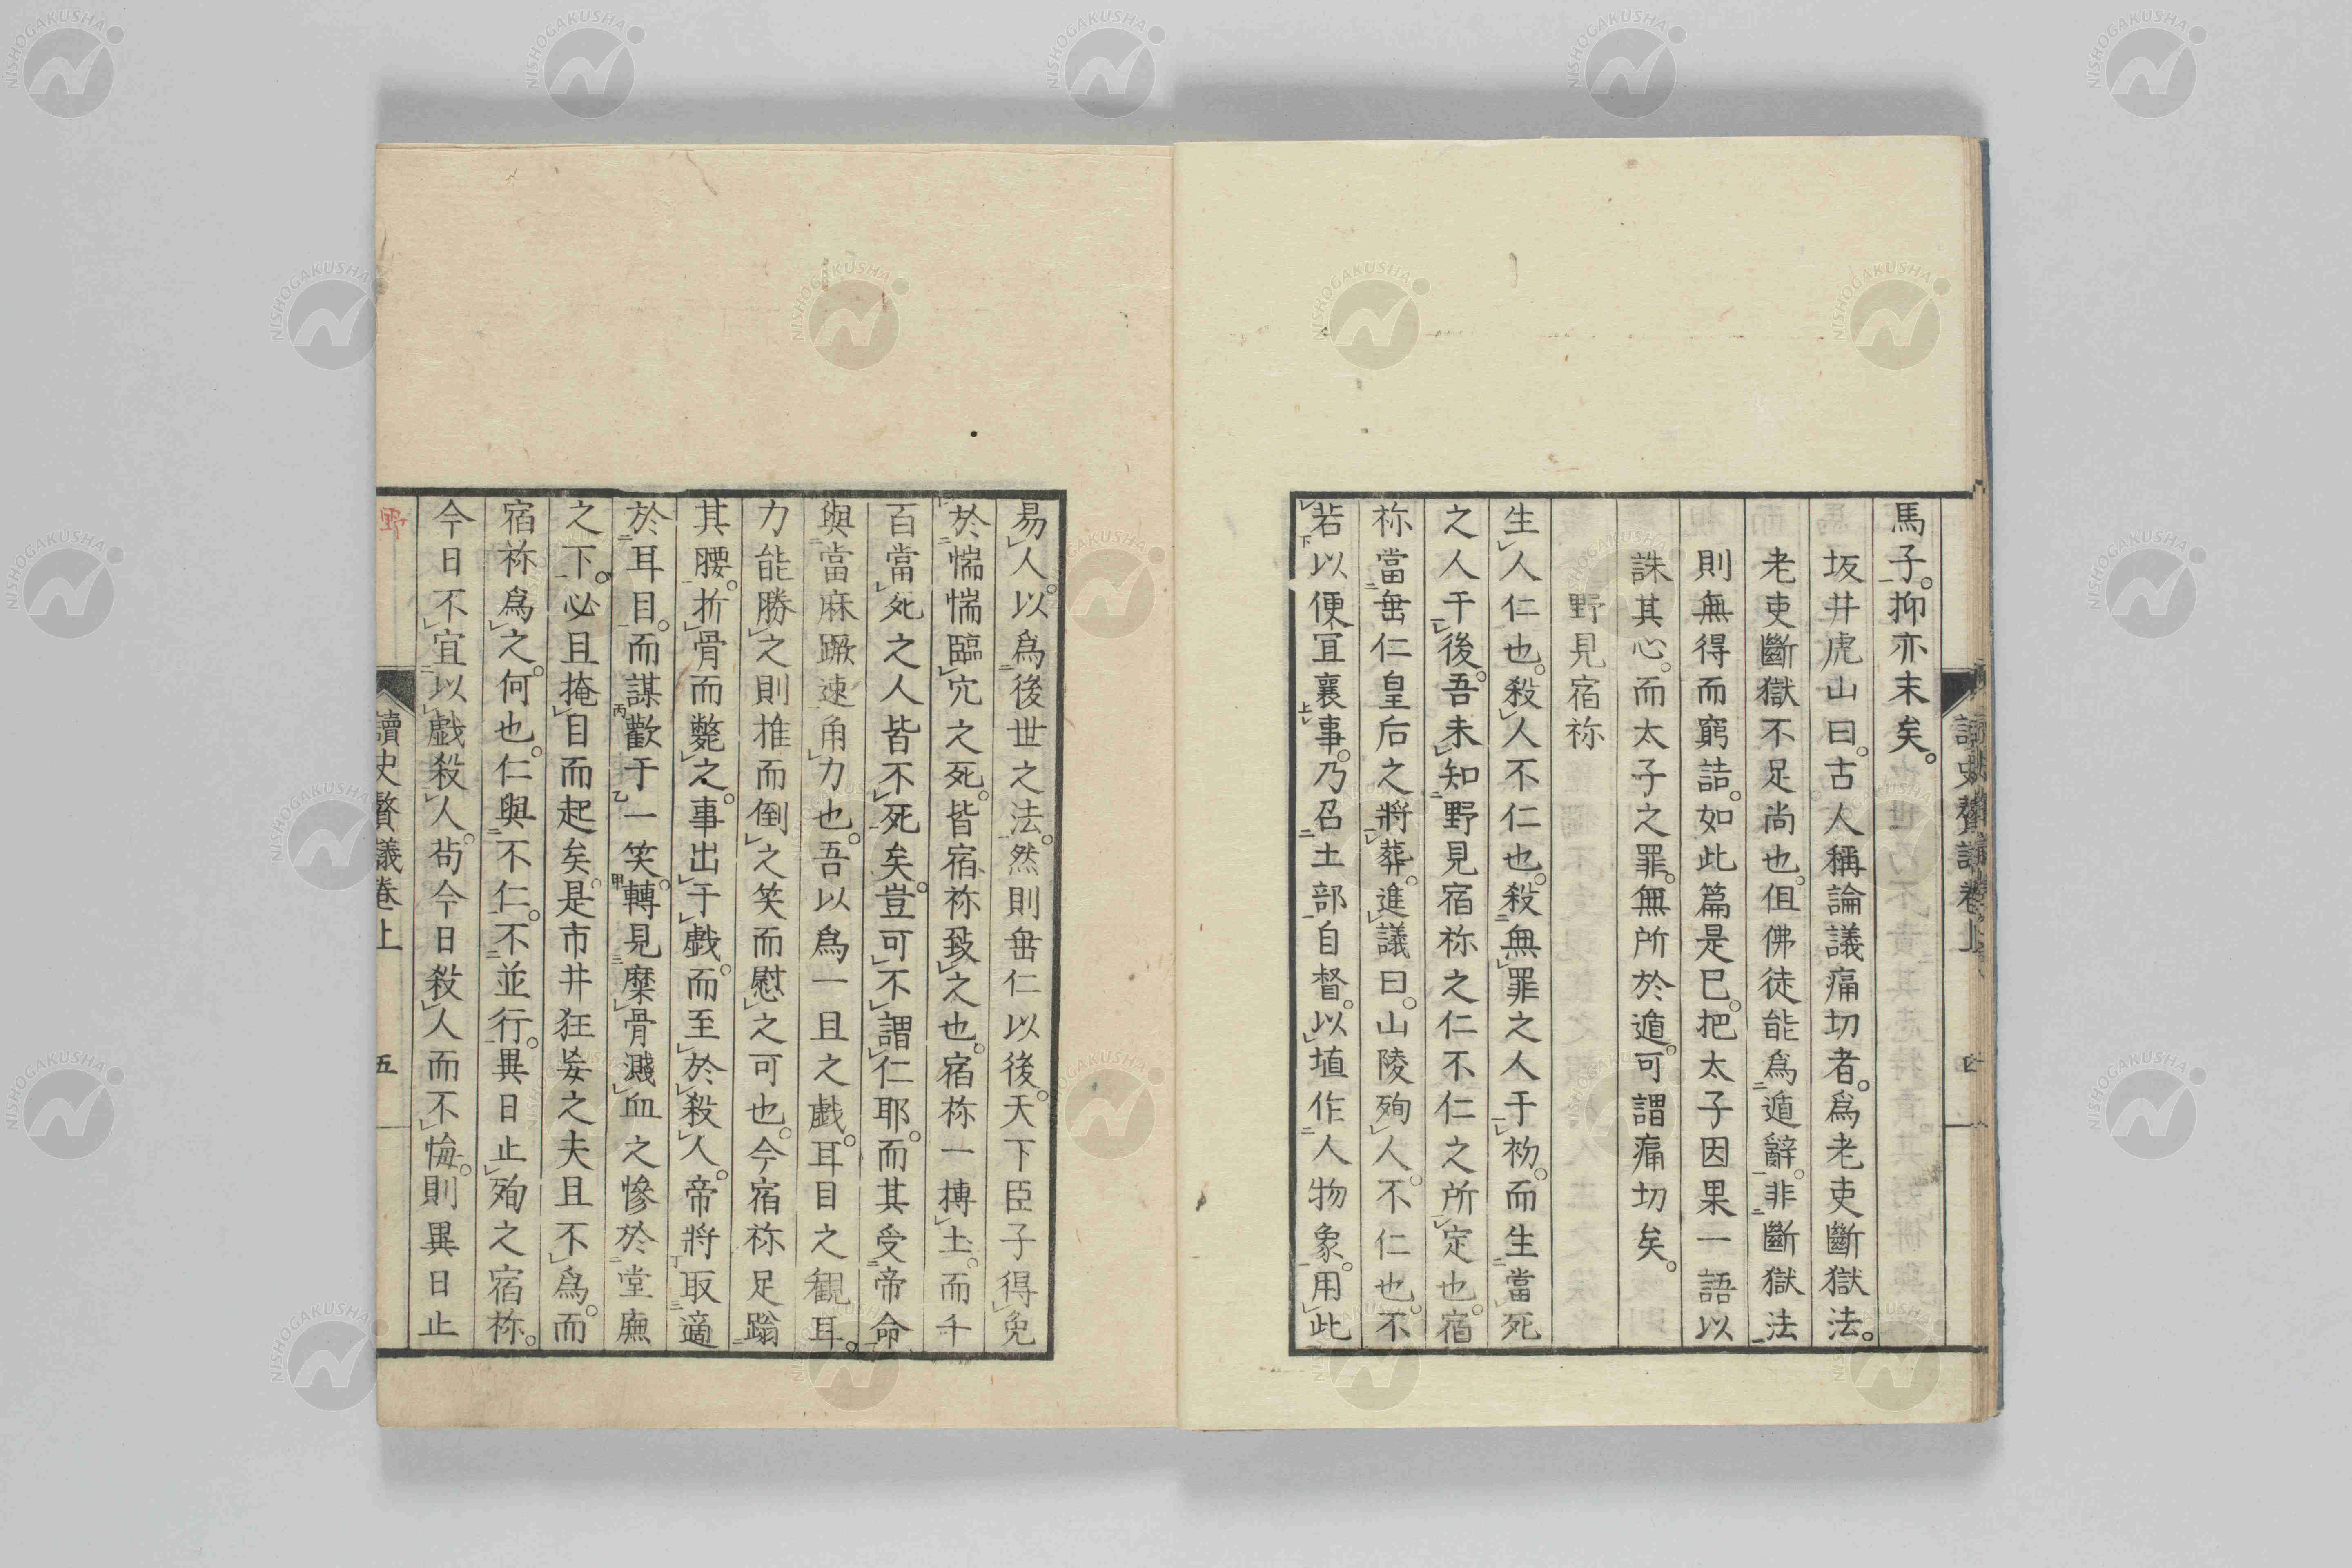 馬子。抑亦末矣。
坂井虎山曰。古人稱論議痛切者。爲老吏斷獄法。
老吏斷獄不足尚也。但佛徒能爲遁辭。非斷獄法
則無得而窮詰。如此篇是巳。把太子因果一語以
誅其心。而太子之罪。無所於遁。可謂痛切矣。
野見宿祢
生人仁也。殺人不仁也。殺無罪之人于初。而生當死
之人于後。吾未知野見宿祢之仁不仁之所定也。宿
祢當垂仁皇后之將葬。進議曰。山陵殉人。不仁也。不
若以便宜襄事。乃召土部自督。以埴作人物象。用此
易人。以爲後世之法。然則垂仁以後。天下臣子得免
於惴惴臨穴之死。皆宿祢致之也。宿祢一摶土。而千
百當死之人皆不死矣。豈可不謂仁耶。而其受帝命
與當麻蹶速角力也。吾以爲一且之戲。耳目之観耳。
力能勝之則推而倒之笑而慰之可也。今宿祢足蹋
其腰。折骨而斃之。事出于戲。而至於殺人。帝將取適
於耳目。而謀歡于一笑。轉見糜骨濺血之慘於堂廡
之下。必且掩目而起矣。是市井狂妄之夫且不爲。而
宿祢爲之。何也。仁與不仁。不並行。異日止殉之宿祢。
今日不宜以戲殺人。苟今日殺人而不悔。則異日止
讀史贅議卷上
五
讀史贅議卷上
四
野
NISHOGAKUSHA